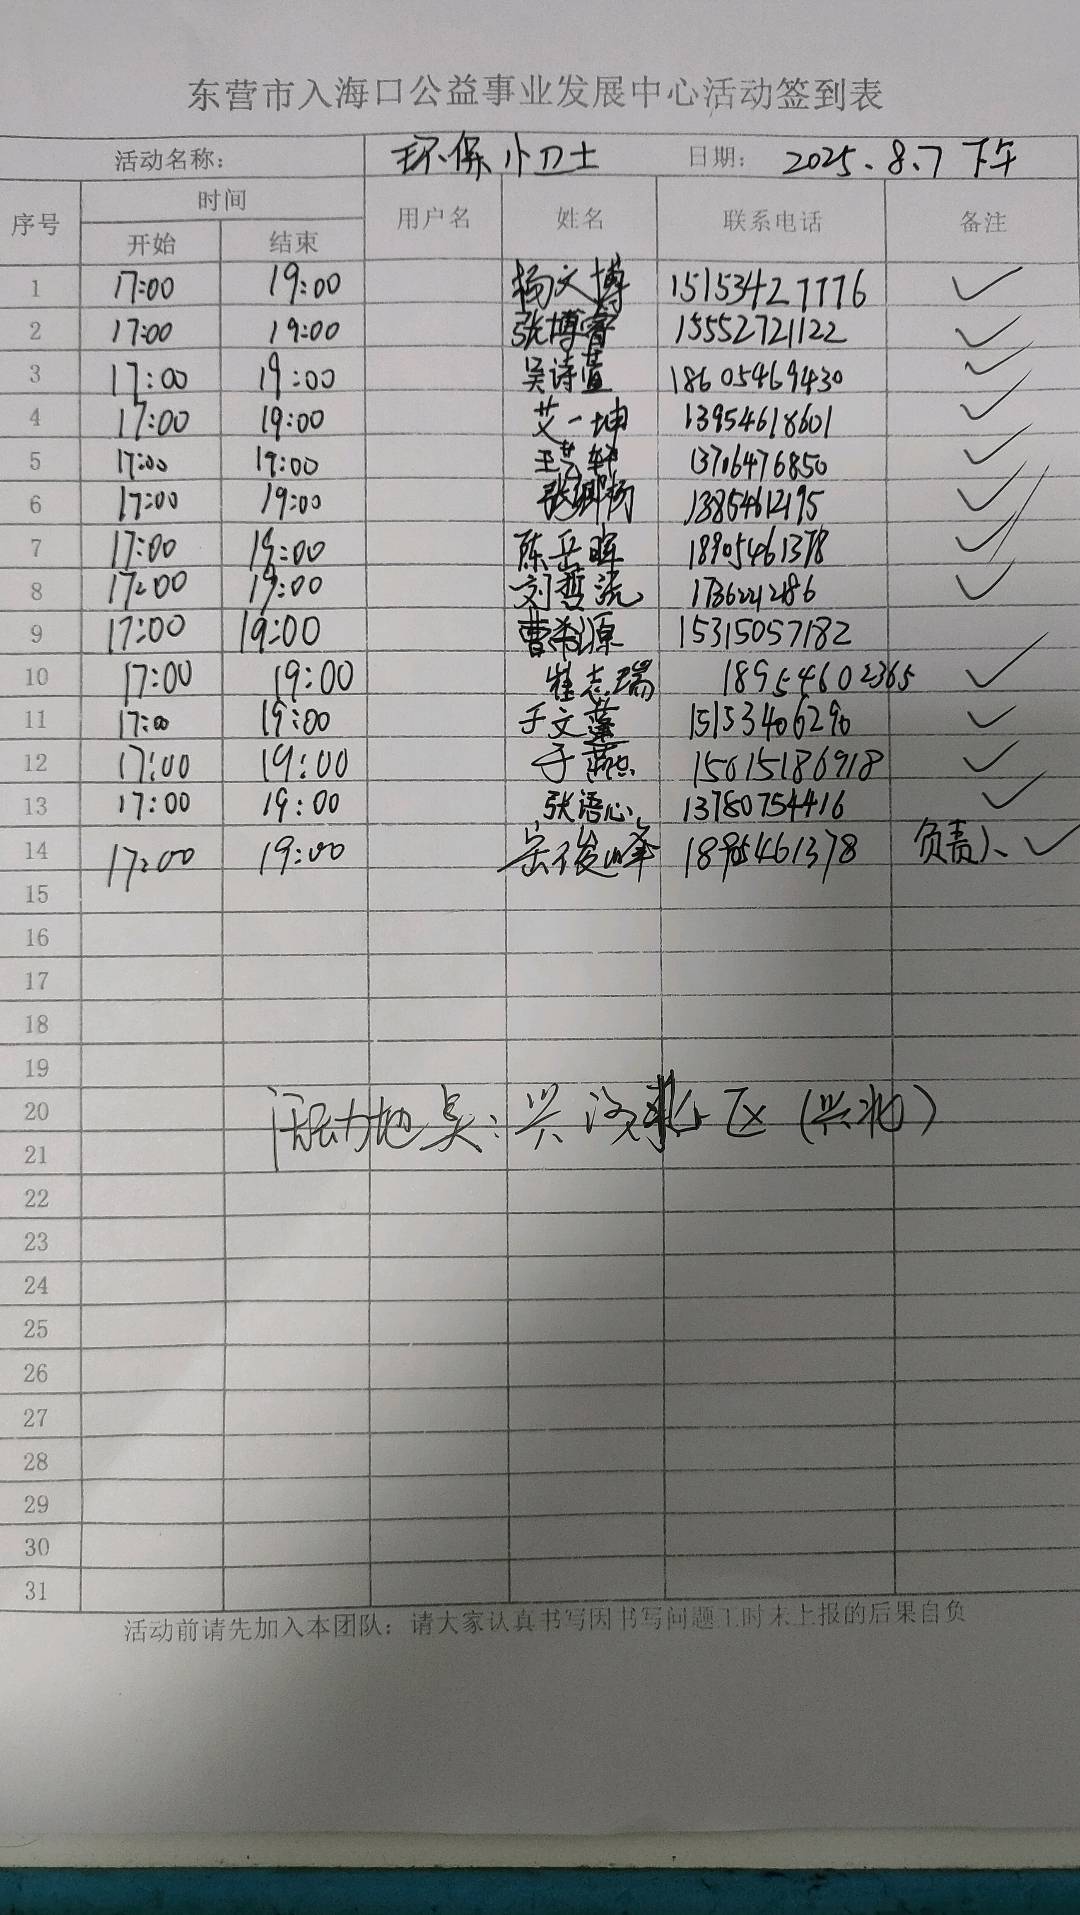 东营市入海口公益事业发展中心活动签到表
活动名称： 环保小卫士 日期： 2025.8.7 下午
序号 时间 用户名 姓名 联系电话 备注
开始 结束
1 17:00 19:00 杨文博 15153427776 ✓
2 17:00 19:00 张博睿 15552721122 ✓
3 17:00 19:00 吴诗萱 18605469430 ✓
4 17:00 19:00 艾一坤 13954618601 ✓
5 17:00 19:00 13706476850 ✓
6 17:00 19:00 ✓
7 17:00 19:00 陈岳晖 18905461378 ✓
8 17:00 19:00 ✓
9 17:00 19:00 15315057182
10 17:00 19:00 18954602365 ✓
11 17:00 19:00 于文蓬 15153406290 ✓
12 17:00 19:00 于燕 15615186918 ✓
13 17:00 19:00 张语心 13780754416 ✓
14 17:00 19:00 负责人 ✓
15
16
17
18
19
20 活动地点：兴 区（兴北）
21
22
23
24
25
26
27
28
29
30
31
活动前请先加入本团队：请大家认真书写因书写问题工时未上报的后果自负